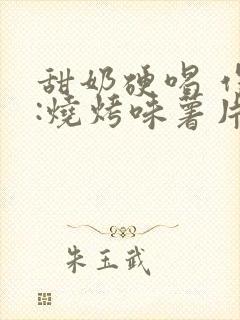 甜奶硬唱
:燒烤味薯片
朱玉武